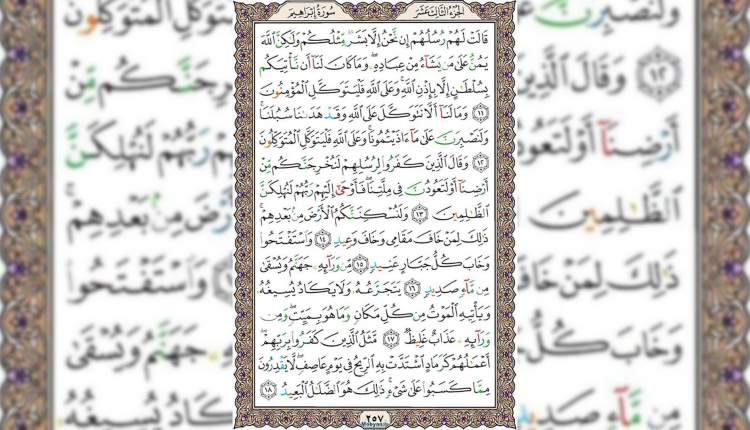 الجزء الثالث عشر
سورة إبراهيم
قَالَتْ لَهُمْ رُسُلُهُمْ إِن نَّحْنُ إِلَّا بَشَرٌ مِّثْلُكُمْ وَلَٰكِنَّ اللَّهَ
يَمُنُّ عَلَىٰ مَن يَشَاءُ مِنْ عِبَادِهِ ۖ وَمَا كَانَ لَنَا أَن نَّأْتِيَكُم
بِسُلْطَانٍ إِلَّا بِإِذْنِ اللَّهِ ۚ وَعَلَى اللَّهِ فَلْيَتَوَكَّلِ الْمُؤْمِنُونَ
﴿١١﴾ وَمَا لَنَا أَلَّا نَتَوَكَّلَ عَلَى اللَّهِ وَقَدْ هَدَانَا سُبُلَنَا ۚ
وَلَنَصْبِرَنَّ عَلَىٰ مَا آذَيْتُمُونَا ۚ وَعَلَى اللَّهِ فَلْيَتَوَكَّلِ الْمُتَوَكِّلُونَ
﴿١٢﴾ وَقَالَ الَّذِينَ كَفَرُوا لِرُسُلِهِمْ لَنُخْرِجَنَّكُم مِّنْ
أَرْضِنَا أَوْ لَتَعُودُنَّ فِي مِلَّتِنَا ۖ فَأَوْحَىٰ إِلَيْهِمْ رَبُّهُمْ لَنُهْلِكَنَّ
الظَّالِمِينَ ﴿١٣﴾ وَلَنُسْكِنَنَّكُمُ الْأَرْضَ مِن بَعْدِهِمْ ۚ
ذَٰلِكَ لِمَنْ خَافَ مَقَامِي وَخَافَ وَعِيدِ ﴿١٤﴾ وَاسْتَفْتَحُوا
وَخَابَ كُلُّ جَبَّارٍ عَنِيدٍ ﴿١٥﴾ مِّن وَرَائِهِ جَهَنَّمُ وَيُسْقَىٰ
مِن مَّاءٍ صَدِيدٍ ﴿١٦﴾ يَتَجَرَّعُهُ وَلَا يَكَادُ يُسِيغُهُ
وَيَأْتِيهِ الْمَوْتُ مِن كُلِّ مَكَانٍ وَمَا هُوَ بِمَيِّتٍ ۖ وَمِن
وَرَائِهِ عَذَابٌ غَلِيظٌ ﴿١٧﴾ مَّثَلُ الَّذِينَ كَفَرُوا بِرَبِّهِمْ ۖ
أَعْمَالُهُمْ كَرَمَادٍ اشْتَدَّتْ بِهِ الرِّيحُ فِي يَوْمٍ عَاصِفٍ ۖ لَّا يَقْدِرُونَ
مِمَّا كَسَبُوا عَلَىٰ شَيْءٍ ۚ ذَٰلِكَ هُوَ الضَّلَالُ الْبَعِيدُ ﴿١٨﴾
٢٥٧